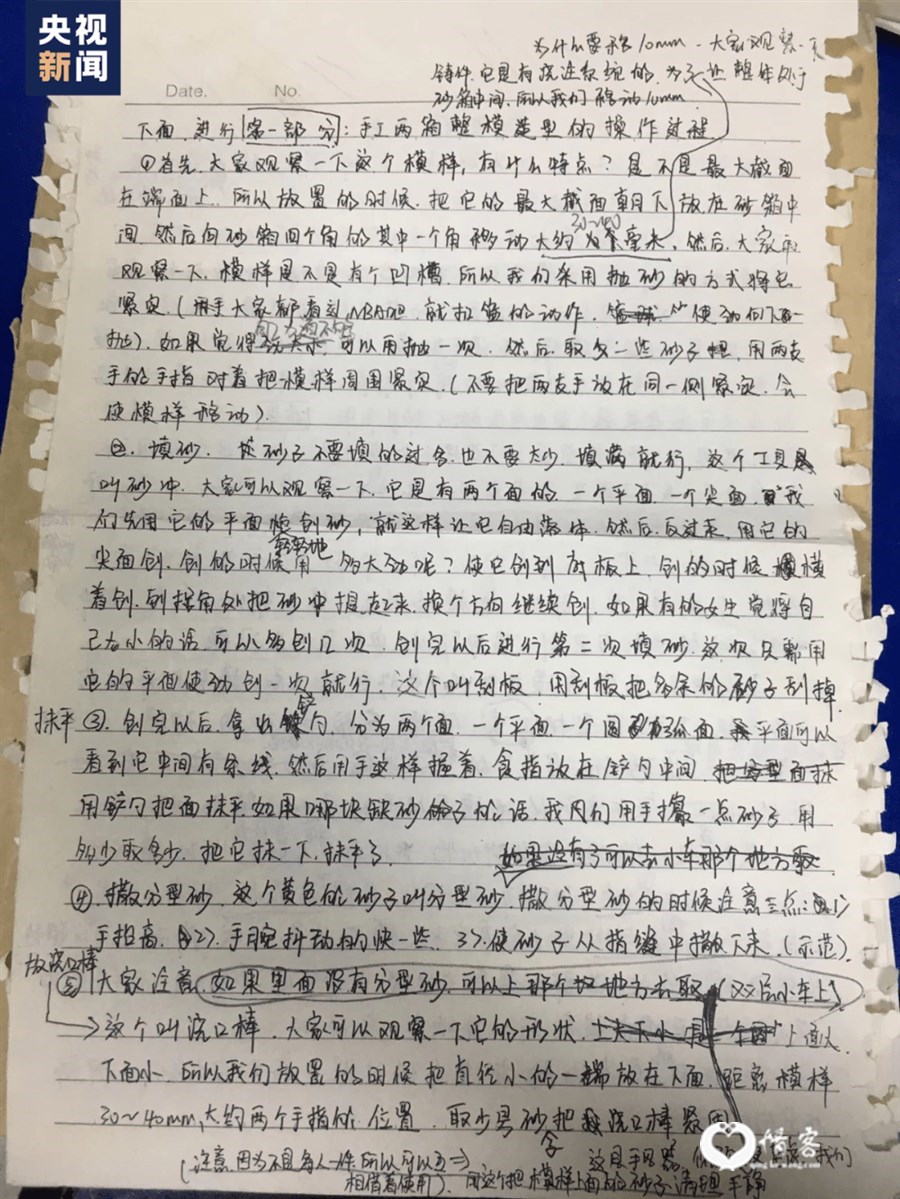 央视新闻
为什么要移10mm - 大家观察一下
铸件,它是有浇注系统的,为了让整体处于
砂箱中间,所以我们移动10mm
Date. No.
下面,进行第一部分:手工两箱整模造型的操作过程
①首先,大家观察一下这个模样,有什么特点?是不是最大截面
在端面上,所以放置的时候,把它的最大截面朝下放在砂箱中
间,然后向砂箱四个角的其中一个角移动大约 毫米,然后,大家再
观察一下,模样是不是有个凹槽,所以我们采用抛砂的方式将它
紧实(用手大家都看到NBA吧,就扣篮的动作, 使劲向下一
抛),如果觉得 可以再抛一次,然后,取少一些砂子,用两支
手的手指对着把模样周围紧实,(不要把两支手放在同一侧紧实,会
使模样移动).
②.填砂,砂子不要填的过多,也不要太少,填满就行,这个工具
叫砂冲,大家可以观察一下,它是有两个面的,一个平面,一个尖面,我
们先用它的平面 刨砂,就这样让它自由落体,然后,反过来,用它的
轻轻地
尖面刨,刨的时候用多大劲呢?使它刨到底板上,刨的时候横
着刨,到拐角处把砂冲提起来,换个方向继续刨,如果有的女生觉得自
己力小的话,可以多刨几次,刨完以后进行第二次填砂,这次只需用
它的平面使劲刨一次就行,这个叫刮板,用刮板把多余的砂子刮掉
抹平 ③.刨完以后,拿出 勺,分为两个面,一个平面,一个圆弧面,平面可以
看到它中间有条线,然后用手这样握着,食指放在铲勺中间
用铲勺把面抹平,如果哪块缺砂子的话,我们用手撮一点砂子,用
多少取多少,把它抹一下,抹平了. 如果没有了可以去小车那个地方取
④.撒分型砂,这个黄色的砂子叫分型砂,撒分型砂的时候注意三点:1)
手抬高,2).手腕抖动的快一些,3).使砂子从指缝中撒下来.(示范).
放浇口棒
⑤ 大家注意,如果里面没有分型砂,可以上那个地方去取(双层小车上)
这个叫浇口棒,大家可以观察一下它的形状, 上面大
下面小,所以我们放置的时候把直径小的一端放在下面,距离模样
30~40mm,大约两个手指的位置,取少量砂把浇口棒紧固
(注意,因为不是每人一件,所以可以
相借着使用).用这个把模样上面的砂子清理干净